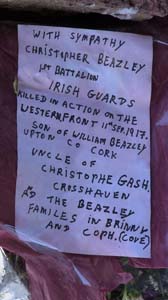 WITH SYMPATHY
CHRISTOPHER BEAZLEY
1ST BATTALION
IRISH GUARDS
KILLED IN ACTION ON THE
WESTERN FRONT 11TH SEP. 1917.
SON OF WILLIAM BEAZLEY
UPTON CO CORK
UNCLE OF
CHRISTOPHE GASH.
CROSSHAVEN
AND THE BEAZLEY
FAMILES IN BRINNY
AND COPH. (COVE)